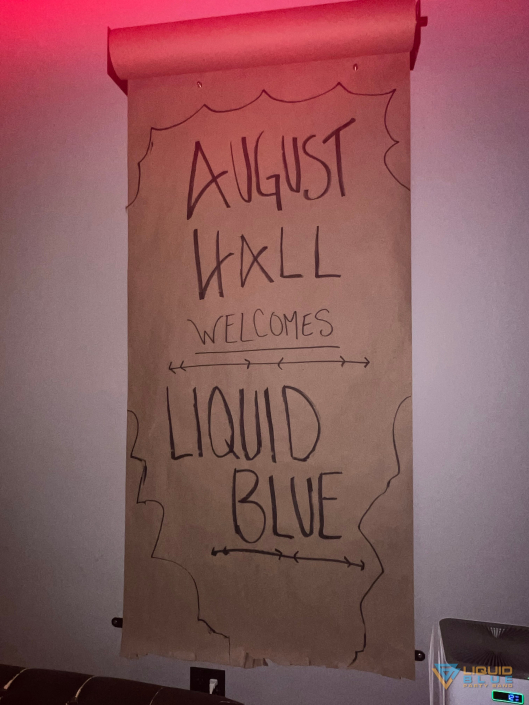 AUGUST
HALL
WELCOMES
LIQUID
BLUE
LIQUID
BLUE
PARTY BAND